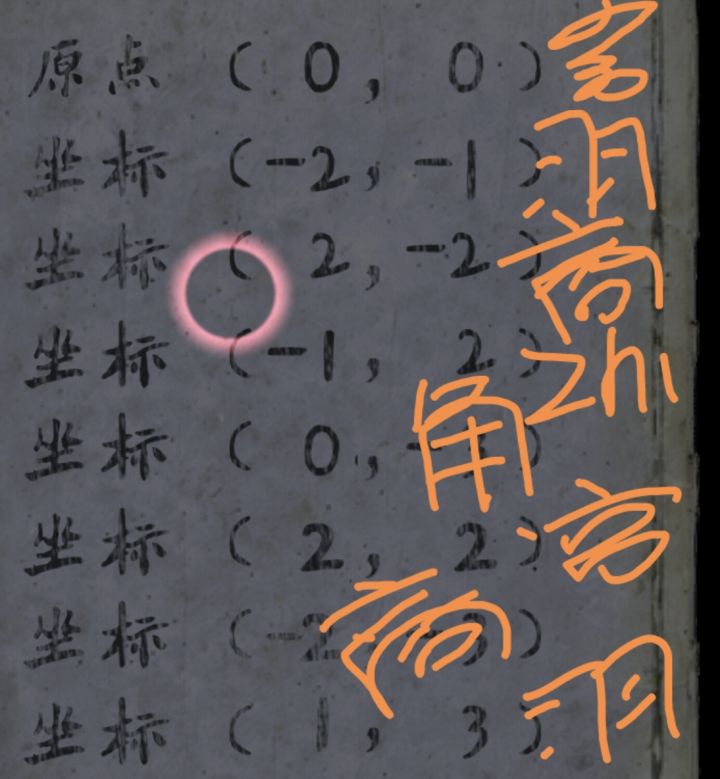 原点 ( 0, 0 ) 宫
坐标 (-2, -1 ) 羽
坐标 ( 2, -2 ) 商
坐标 (-1, 2 ) zhi
坐标 ( 0, ) 角
坐标 ( 2, 2 ) 宫
坐标 (-2, ) 商
坐标 ( 1, 3 ) 羽